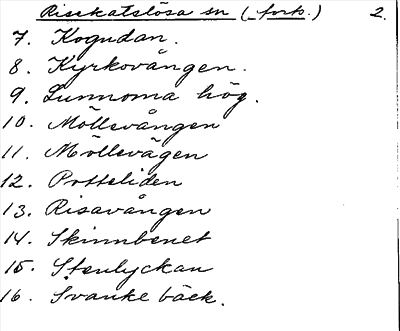 Risekatslösa sn (forts.) 2.
7. Kogudan.
8. Kyrkovången.
9. Lunnoma hög.
10. Möllevången
11. Möllevägen
12. Potteliden
13. Risavången
14. Skinnbenet
15. Stenlyckan
16. Svanke bäck.